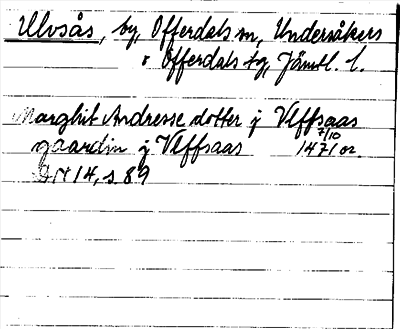 Ulvsås, by, Offerdals sn, Undersåkers
o Offerdals tg, Jämtl. l.
Marghit Andresse dotter j Vlffsaas
7/10
gaardin j Vlffsaas 1471 or.
DN 14, s 89